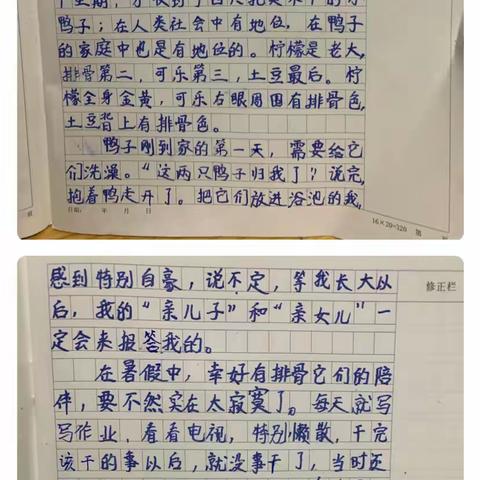 鸭子；在人类社会中有地位，在鸭子
的家庭中也是有地位的。柠檬是老大，
排骨第二，可乐第三，土豆最后。柠
檬全身金黄，可乐右眼周围有排骨色，
土豆背上有排骨色。
鸭子刚到家的第一天，需要给它
们洗澡。“这两只鸭子归我了”？说完，
抱着鸭走开了。把它们放进浴池的我，
日期： 年 月 日
16×20=320 第
感到特别自豪，说不定，等我长大以
修正栏
后，我的“亲儿子”和“亲女儿”一
定会来报答我的。
在暑假中，幸好有排骨它们的陪
伴，要不然实在太寂寞了。每天就写
写作业，看看电视，特别懒散，干完
该干的事以后，就没事干了，当时还